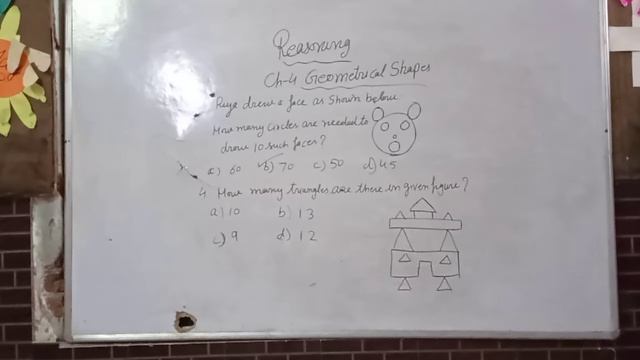 Reasoning
Ch-4 Geometrical Shapes
Riya drew a face as shown below.
How many circles are needed to
draw 10 such faces?
a) 60 b) 70 c) 50 d) 45
4 How many triangles are there in given figure?
a) 10 b) 13
c) 9 d) 12